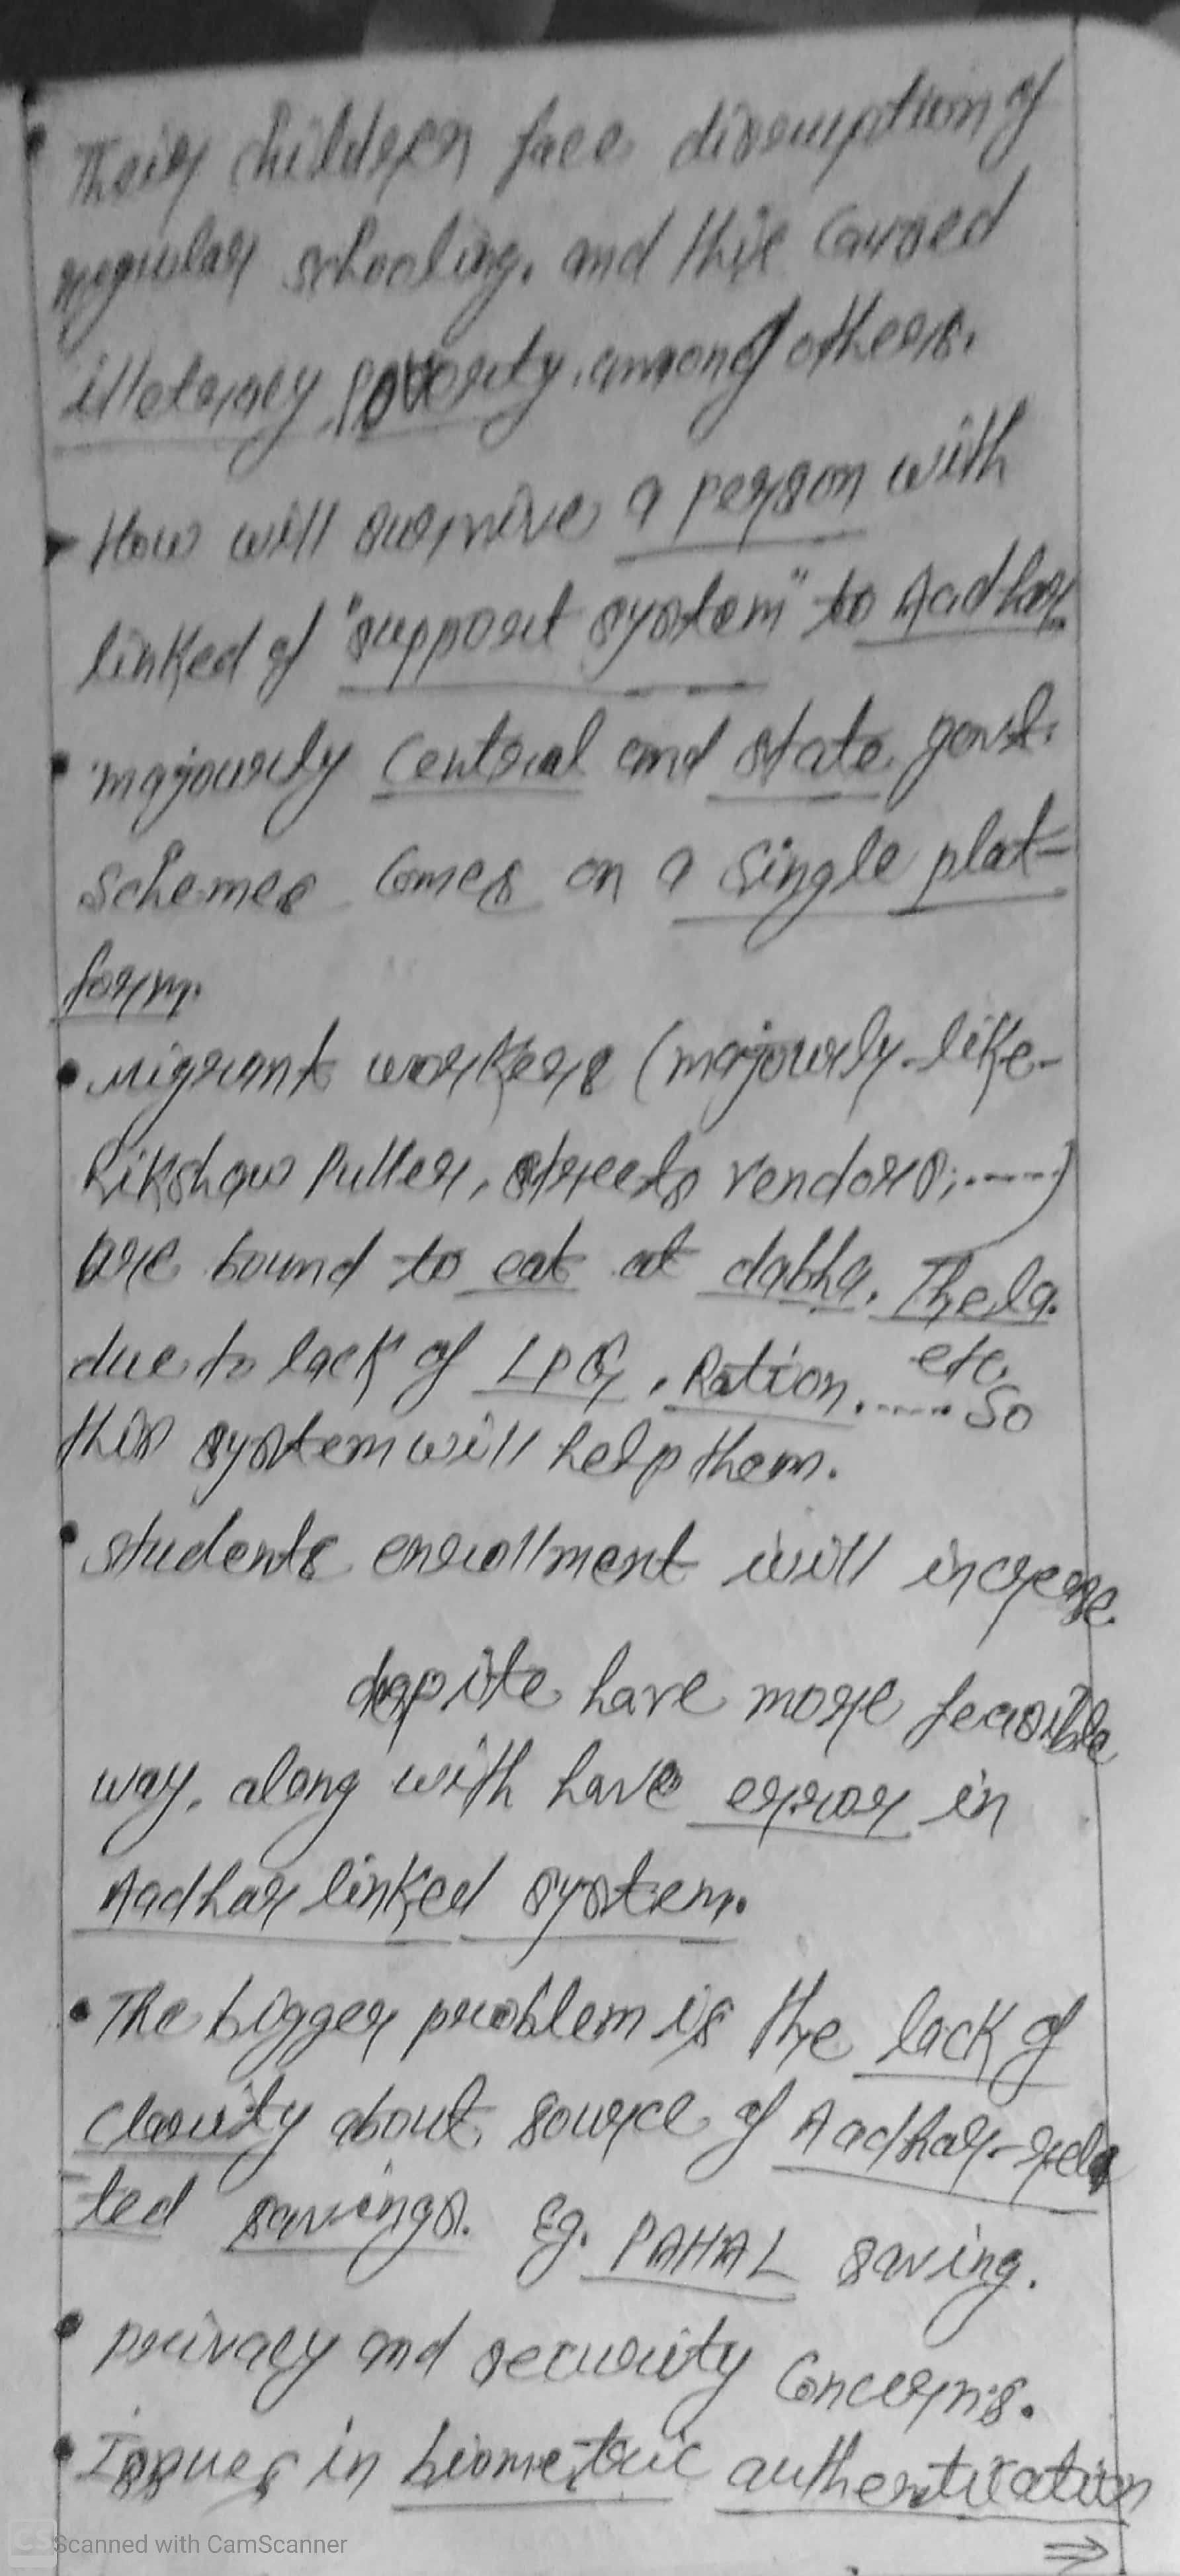 • Their children face disruption of
regular schooling, and this caused
illeteracy, poverty, among others.
▸ How will survive a person with
linked of "support system" to Aadhar.
• majourly central and state govt.
schemes comes on a single plat-
form.
• Migrant workers (majourly-like-
Rikshaw Puller, streets vendors,....)
are bound to eat at dabha, Thela.
due to lack of LPG, Ration..... etc. So
this system will help them.
• students enrollment will increase.
despite have more feasible
way, along with have error in
Aadhar linked system.
• The bigger problem is the lack of
clarity about source of Aadhar-rela
ted savings. Eg. PAHAL saving.
• privacy and security concerns.
• Issues in biometric authentication
⇒
CS Scanned with CamScanner